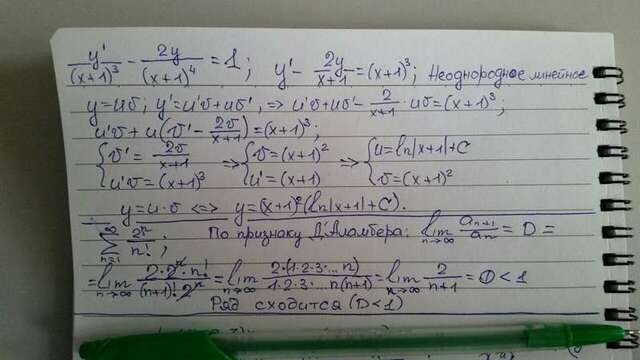 y'/(x+1)³ - 2y/(x+1)⁴ = 1; y' - 2y/x+1 = (x+1)³; Неоднородное линейное
y=uv; y'=u'v+uv', => u'v+uv' - 2/x+1 · uv = (x+1)³;
u'v+u(v' - 2v/x+1) = (x+1)³;
{v' = 2v/x+1 => {v=(x+1)² => {u=ln|x+1|+C
{u'v=(x+1)³ {u'=(x+1) {v=(x+1)²
y=u·v <=> y=(x+1)²(ln|x+1|+C).
∑ n=1 ∞ 2ⁿ/n! ; По признаку Д'Аламбера: lim n→∞ aₙ₊₁/aₙ = D =
= lim n→∞ 2·2ⁿ·n!/(n+1)!·2ⁿ = lim n→∞ 2·(1·2·3·...n)/1·2·3·...n(n+1) = lim n→∞ 2/n+1 = 0 < 1
Ряд сходится (D<1)